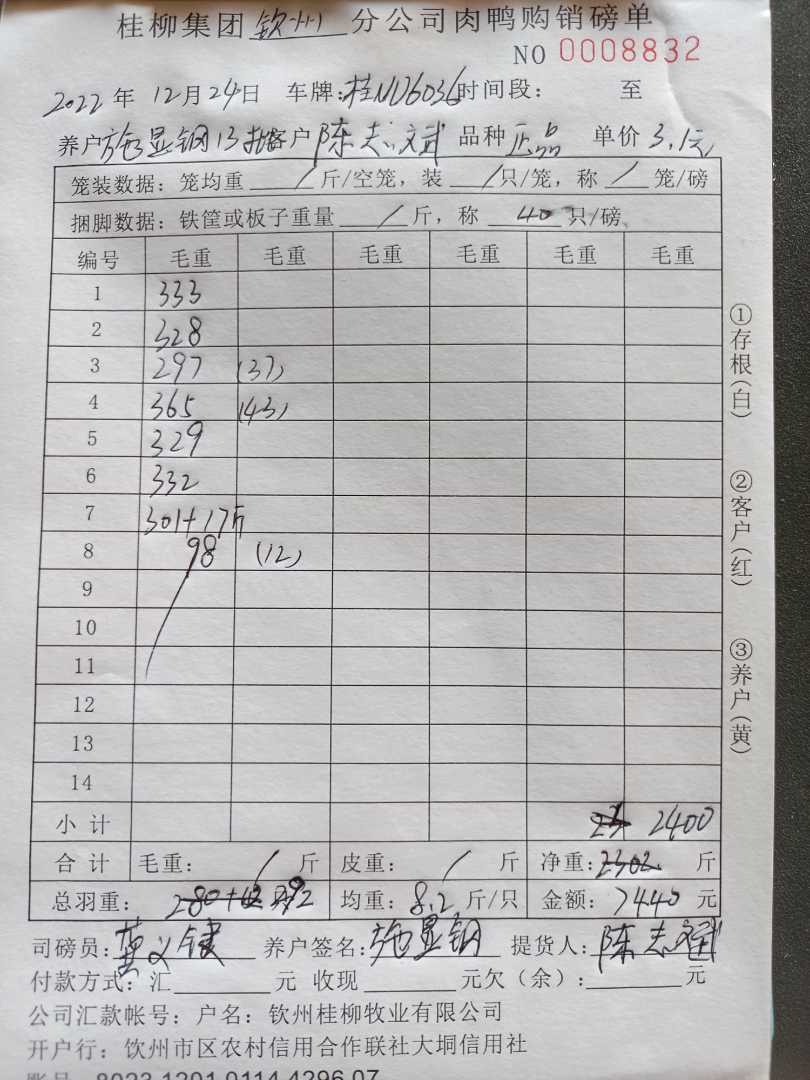 桂柳集团 钦州 分公司肉鸭购销磅单
NO 0008832
2022年 12月24日 车牌:桂NU6036时间段: 至
养户施显钢13批客户陈志斌 品种正品 单价3.1元
笼装数据:笼均重 / 斤/空笼,装 / 只/笼,称 / 笼/磅
捆脚数据:铁筐或板子重量 / 斤,称 40 只/磅
编号 毛重 毛重 毛重 毛重 毛重 毛重
1 333
2 328
3 297 (37)
4 365 (43)
5 329
6 332
7 301+17斤
8 98 (12)
9
10
11
12
13
14
小计 2400
合计 毛重: / 斤 皮重: / 斤 净重:2302 斤
总羽重: 292 均重: 8.2 斤/只 金额: 7440 元
司磅员: 养户签名:施显钢 提货人:陈志斌
付款方式:汇 元 收现 元欠(余): 元
公司汇款帐号:户名:钦州桂柳牧业有限公司
开户行:钦州市区农村信用合作联社大垌信用社
账号 8023 1201 0114 4296 07
①存根(白)
②客户(红)
③养户(黄)